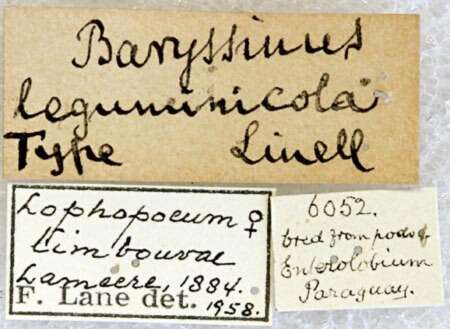 Baryssinus
leguminicola
Type Linell
Lophopoeum ♀
timbouvae
Lameere, 1884.
F. Lane det. 1958.
6052.
bred from pods of
Enterolobium
Paraguay.